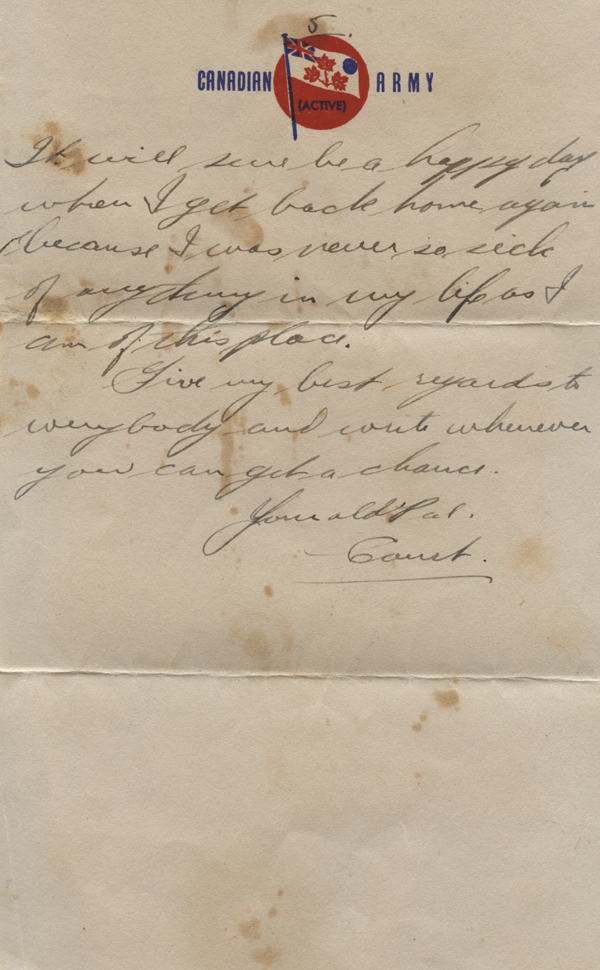 5.
CANADIAN ARMY
(ACTIVE)
It will sure be a happy day
when I get back home again
because I was never so sick
of anything in my life as I
am of this place.
Give my best regards to
everybody and write whenever
you can get a chance.
Your old Pal.